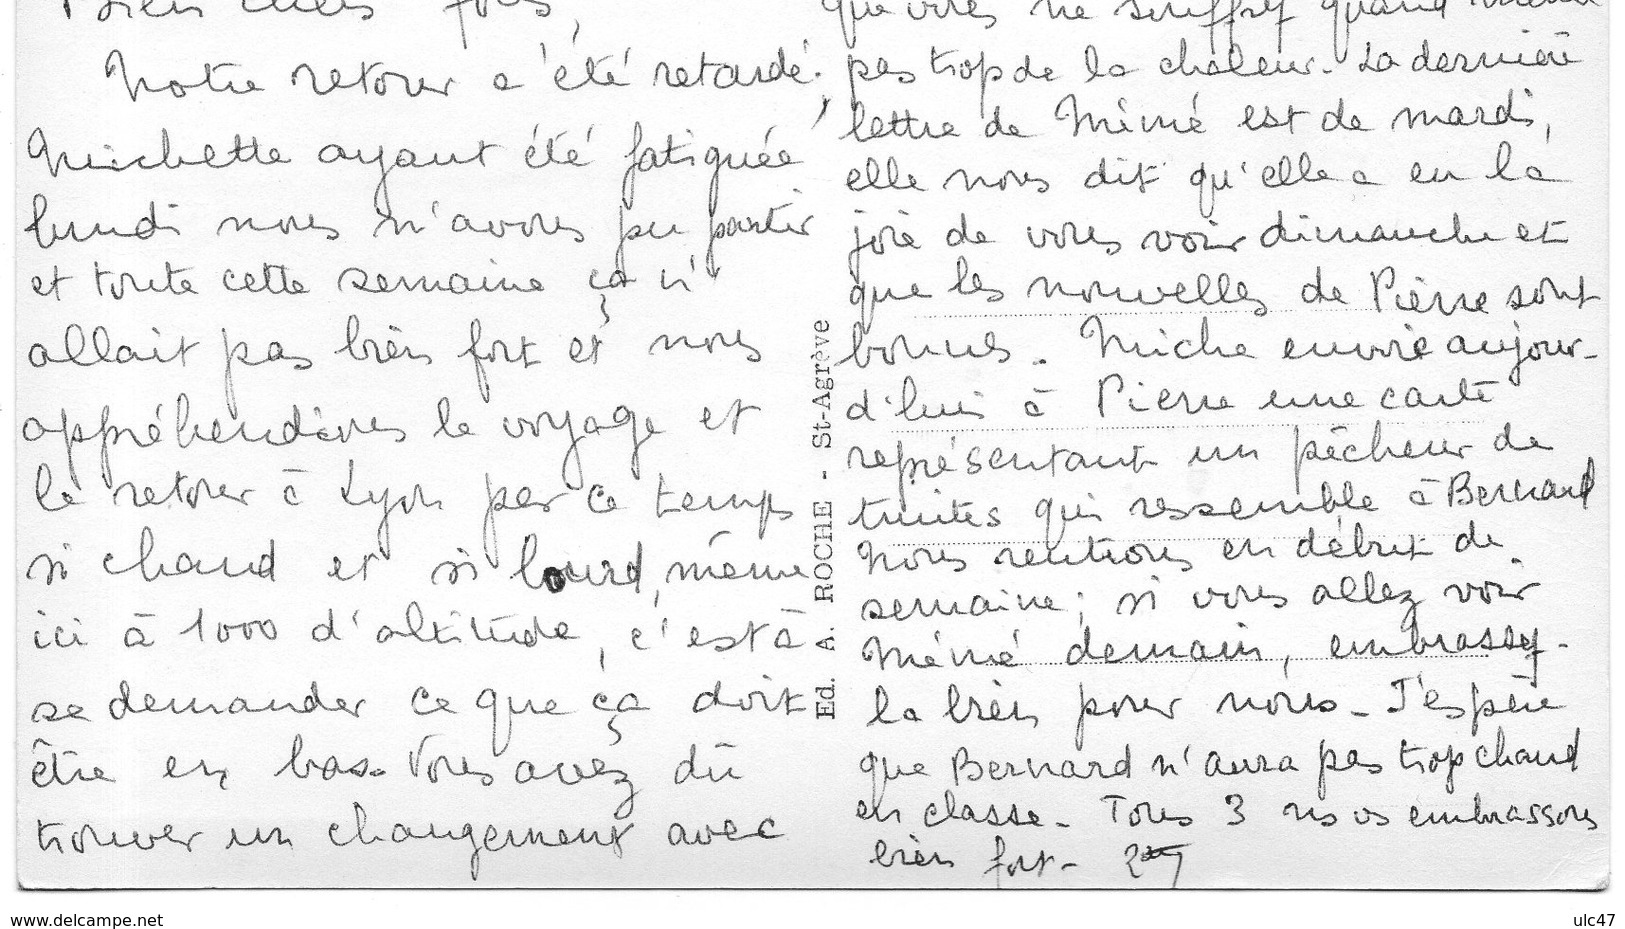 Bien chers tous,
Notre retour a été retardé,
Michette ayant été fatiguée
lundi nous n'avons pu partir
et toute cette semaine ça n'
allait pas bien fort et nous
appréhendions le voyage et
le retour à Lyon par ce temps
si chaud et si lourd, même
ici à 1000 d'altitude, c'est à
se demander ce que ça doit
être en bas. Vous avez dû
trouver un changement avec
que vous ne souffrez quand même
pas trop de la chaleur. La dernière
lettre de Mémé est de mardi,
elle nous dit qu'elle a eu la
joie de vous voir dimanche et
que les nouvelles de Pierre sont
bonnes. Miche envoie aujour-
d'hui à Pierre une carte
représentant un pêcheur de
truites qui ressemble à Bernard
Nous rentrons en début de
semaine; si vous allez voir
Mémé demain, embrassez-
la bien pour nous. J'espère
que Bernard n'aura pas trop chaud
en classe. Tous 3 ns vs embrassons
bien fort.
Ed. A. ROCHE - St-Agrève
www.delcampe.net
ulc47